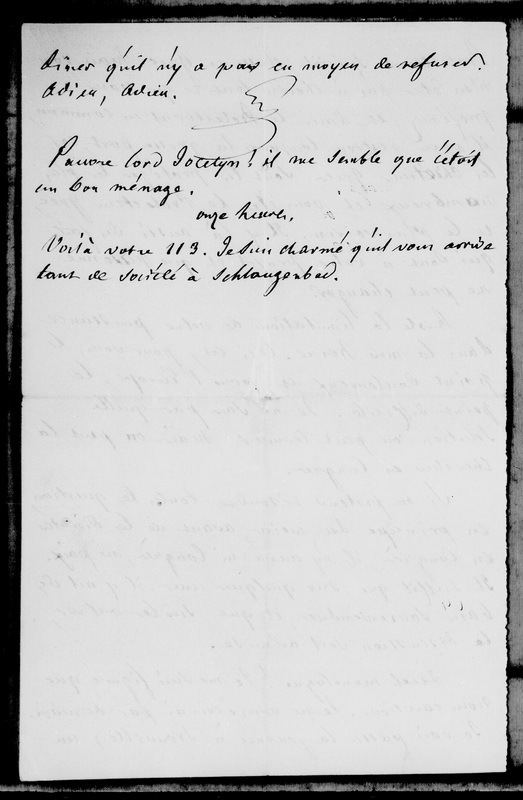 dîner qu'il n'y a pas eu moyen de refuser.
Adieu, Adieu.
Pauvre lord Jocelyn ! il me semble que c'était
un bon ménage.
onze heures,
Voilà votre 113. Je suis charmé qu'il vous arrive
tant de société à Schlangenbad.